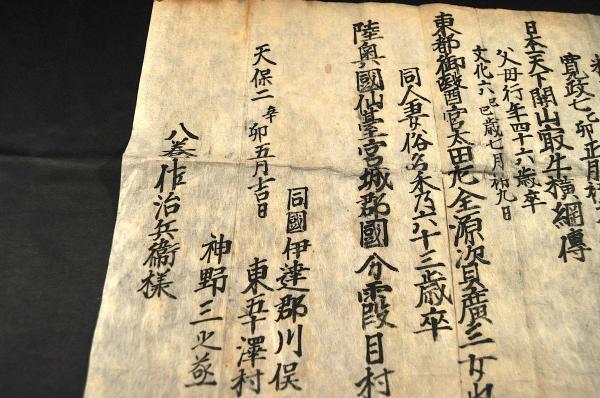 寛政七乙卯正月
日本天下開山取牛横綱傳
父母行年四十六歳卒
文化六己巳歳七月初九日
東都御醫官太田全源次廣三女
同人妻俗名六十三歳卒
陸奥國仙臺宮城郡國分霞目村
天保二辛卯五月吉日
同國伊達郡川俣
東五十澤村
神野三之亟
八巻作治兵衛様